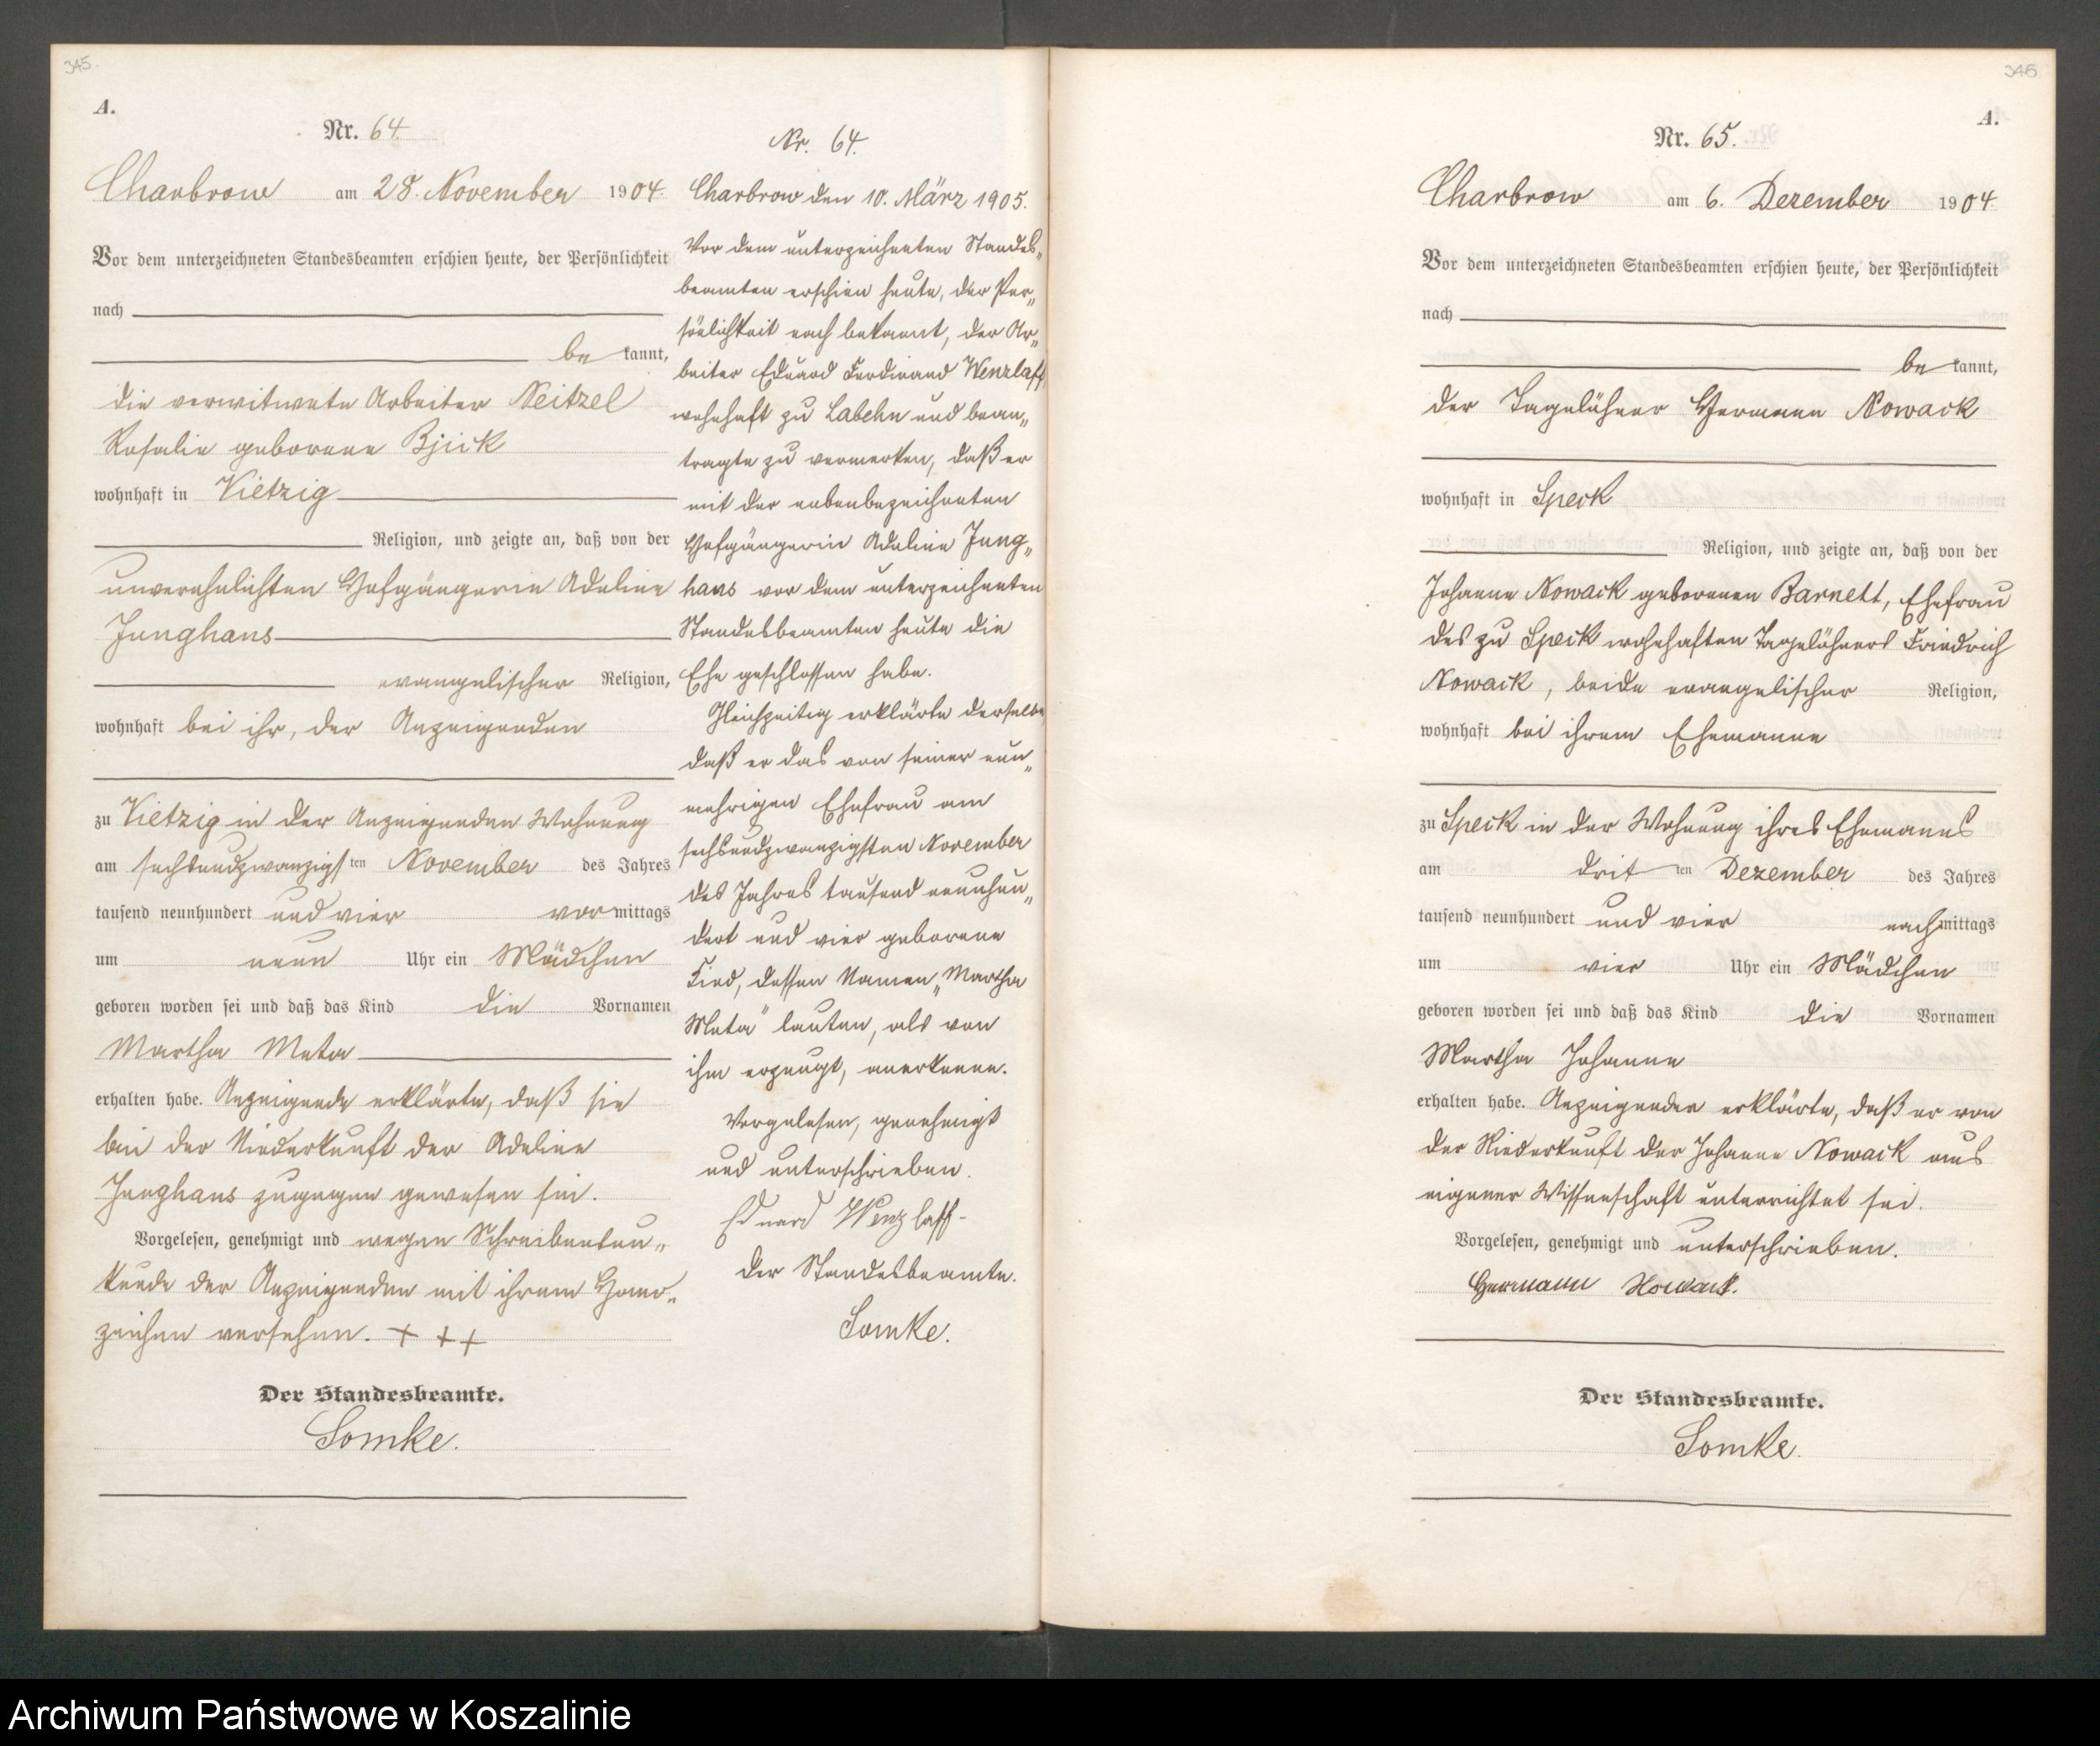 345.
A.
Nr. 64.
Charbrow am 28. November 1904.
Vor dem unterzeichneten Standesbeamten erschien heute, der Persönlichkeit
nach
be kannt,
die verwitwete Arbeiter Neitzel
Rosalie geborene Bjick
wohnhaft in Vietzig
Religion, und zeigte an, daß von der
unverehelichten Hofgängerin Adeline
Junghans
evangelischer Religion,
wohnhaft bei ihr, der Anzeigenden
zu Vietzig in der Anzeigenden Wohnung
am sechsundzwanzigs ten November des Jahres
tausend neunhundert und vier vor mittags
um neun Uhr ein Mädchen
geboren worden sei und daß das Kind die Vornamen
Martha Meta
erhalten habe. Anzeigende erklärte, daß sie
bei der Niederkunft der Adeline
Junghans zugegen gewesen sei.
Vorgelesen, genehmigt und wegen Schreibensun„
kunde der Anzeigenden mit ihrem Hand„
zeichen versehen. + + +
Der Standesbeamte.
Lomke.
Nr. 64.
Charbrow den 10. März 1905.
Vor dem unterzeichneten Standes„
beamten erschien heute, der Per„
sönlichkeit nach bekannt, der Ar„
beiter Eduard Ferdinand Wenzlaff
wohnhaft zu Labehn und bean„
tragte zu vermerken, daß er
mit der nebenbezeichneten
Hofgängerin Adeline Jung„
hans vor dem unterzeichneten
Standesbeamten heute die
Ehe geschlossen habe.
Gleichzeitig erklärte derselbe
daß er das von seiner nun„
mehrigen Ehefrau am
sechsundzwanzigsten November
des Jahres tausend neunhun„
dert und vier geborene
Kind, dessen Namen „Martha
Meta" lauten, als von
ihm erzeugt, anerkenne.
Vorgelesen, genehmigt
und unterschrieben.
Eduard Wenzlaff
Der Standesbeamte.
Lomke.
346
A.
Nr. 65.
Charbrow am 6. Dezember 1904
Vor dem unterzeichneten Standesbeamten erschien heute, der Persönlichkeit
nach
be kannt,
der Tagelöhner Hermann Nowack
wohnhaft in Speck
Religion, und zeigte an, daß von der
Johanne Nowack geborenen Barnett, Ehefrau
des zu Speck wohnhaften Tagelöhners Friedrich
Nowack, beide evangelischer Religion,
wohnhaft bei ihrem Ehemanne
zu Speck in der Wohnung ihres Ehemanns
am drit ten Dezember des Jahres
tausend neunhundert und vier nach mittags
um vier Uhr ein Mädchen
geboren worden sei und daß das Kind die Vornamen
Martha Johanne
erhalten habe. Anzeigender erklärte, daß er von
der Niederkunft der Johanne Nowack aus
eigener Wissenschaft unterrichtet sei.
Vorgelesen, genehmigt und unterschrieben.
Hermann Nowack.
Der Standesbeamte.
Lomke.
Archiwum Państwowe w Koszalinie